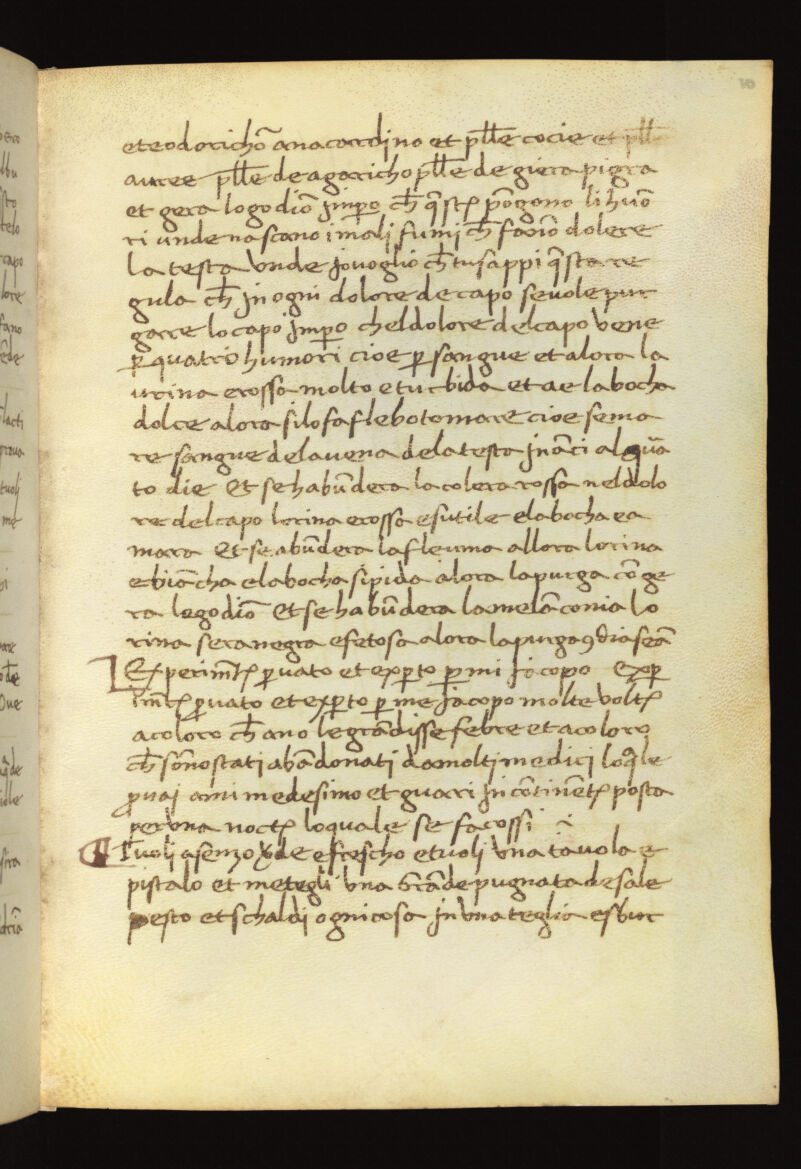 10
et eodorichõ anacordino et pll̃e cocie et pll̃e
auree pll̃e de agaricho pll̃e de giera pigra
et gera logodiõ jmpero ch̃ q̃stj põgono li huõ
ri unde nascano i mali fumj ch̃ fanõ dolere
la testa unde jo uoglio ch̃ tu sappi q̃sta re
gula ch̃ jn ogni dolore de capo se uole pur
gare lo capo jmpero che l dolore del capo vene
p quatro humori cioe p sangue et alora la
urina e rossa molto e turbida et ae la bocha
dolce alora si lo fa flebotomare cioe sema
re sangue de la uena de la testa jnãci alquã
to die Et se habũdera la colera rossa nel dolo
re del capo lorina e rossa e sutile e la bocha ea
mara Et se abũdera la fleuma allora lorina
e biãcha e la bocha sipida alora la purga cõ ge
ra legodiõ Et se habũdera la melãconia lo
rina sera negra e fetosa alora la purga 9 diaseã
Experimt̃j pruato et experto p mi jacopo Exper
imt̃j pruato et experto p me jacopo molte voltj
a coloro ch̃ ano le grãdisse febre et a coloro
ch̃ sõno stati abãdonati da molti medici lo q̃le
prouaj a mi medesimo et guari jn cõtinẽtj posta
per una noctj lo quale se fa cossi
Tuolj asenzo v̾de e frescho e tuolj una tauola e
pistalo et metegli una grãde pugnata de sale
pesto et schaldi ogni cosa jn una teglia e sbur